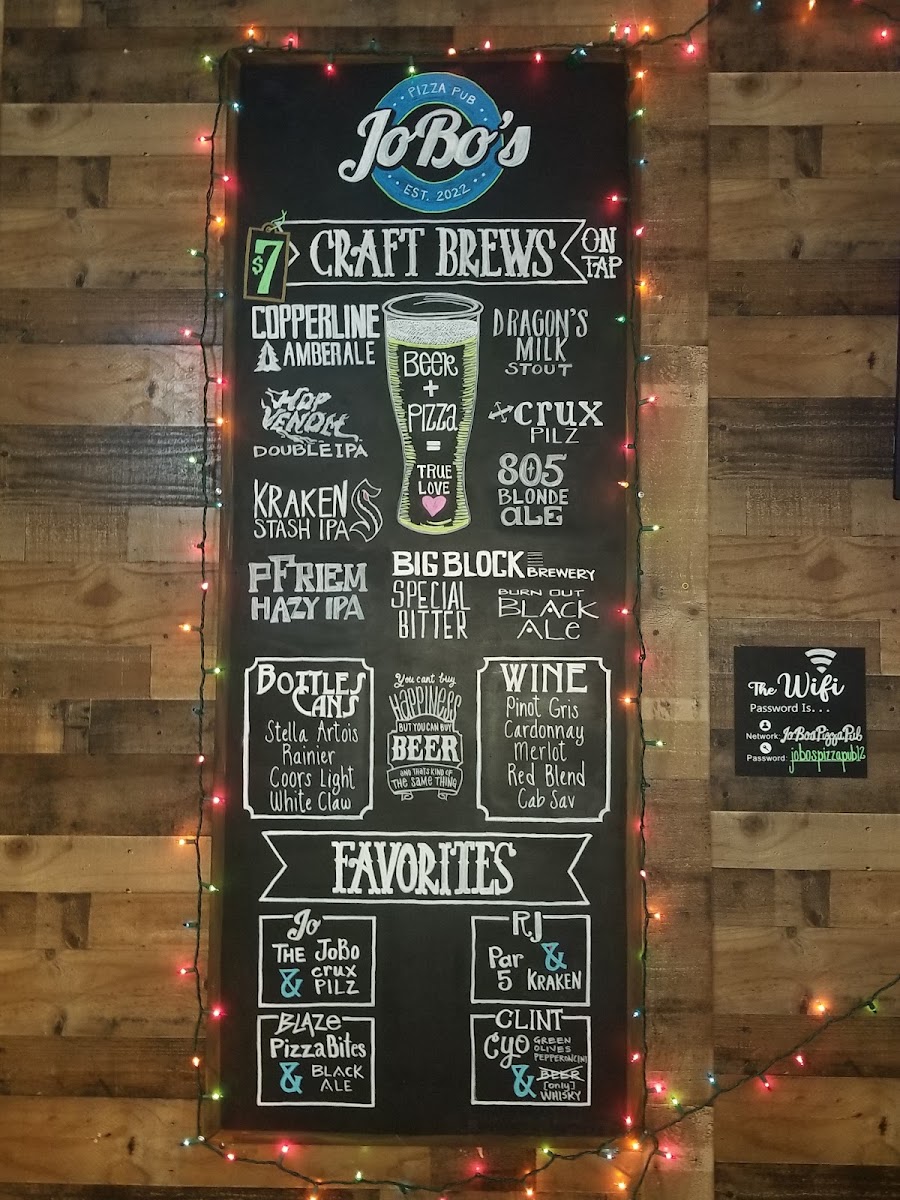 PIZZA PUB
JoBo's
EST. 2022
$7
CRAFT BREWS
ON
TAP
COPPERLINE
AMBER ALE
Hop
VENOM
DOUBLE IPA
KRAKEN
STASH IPA
S
PFRIEM
HAZY IPA
BEER
+
PIZZA
=
TRUE
LOVE
DRAGON'S
MILK
STOUT
CRUX
PILZ
805
BLONDE
ALE
BIG BLOCK
BREWERY
SPECIAL
BITTER
BURN OUT
BLACK
ALE
BOTTLES
CANS
Stella Artois
Rainier
Coors Light
White Claw
You cant buy
HAPPINESS
BUT YOU CAN BUY
BEER
AND THAT'S KIND OF
THE SAME THING
WINE
Pinot Gris
Cardonnay
Merlot
Red Blend
Cab Sav
FAVORITES
Jo
THE JOBO
& CRUX
PILZ
RJ
Par &
5 KRAKEN
BLAZE
Pizza Bites
& BLACK
ALE
CLINT
Cyo GREEN
OLIVES
PEPPERONCINI
& BEER
[only]
WHISKY
The Wifi
Password Is...
Network: JoBosPizzaPub
Password: jobospizzapub12